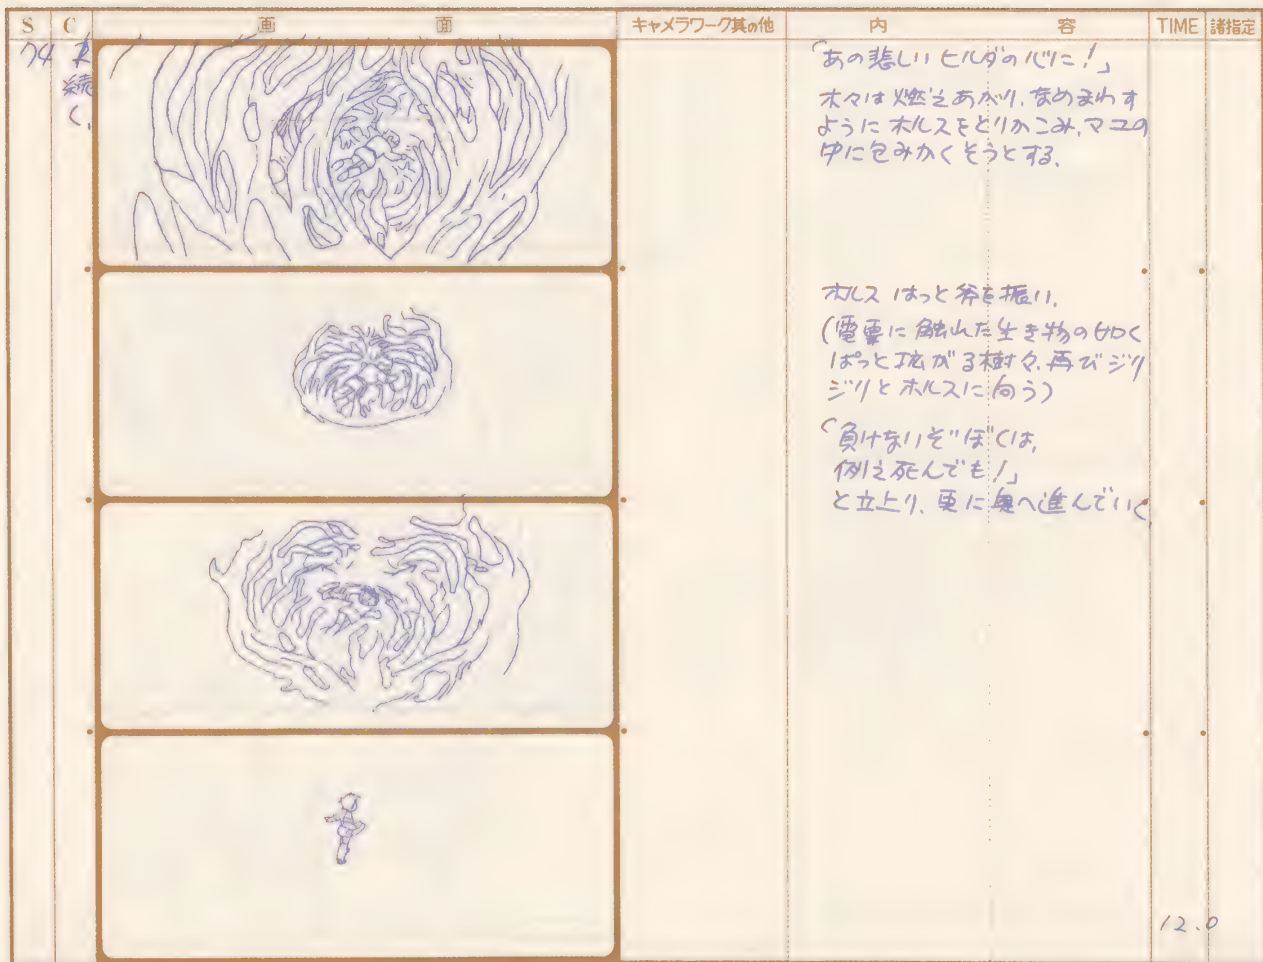 S C 画 面 キャメラワーク其の他 内 容 TIME 諸指定
74
続
く、
「あの悲しいヒルダの心に！」
木々は燃えあがり、なめまわす
ようにホルスをとりかこみ、マユの
中に包みかくそうとする、
ホルス はっと斧を振い、
(電気に触れた生き物の如く
ぱっと拡がる樹々、再びジリ
ジリとホルスに向う)
「負けないぞぼくは、
例え死んでも！」
と立上り、更に奥へ進んでいく
12.0